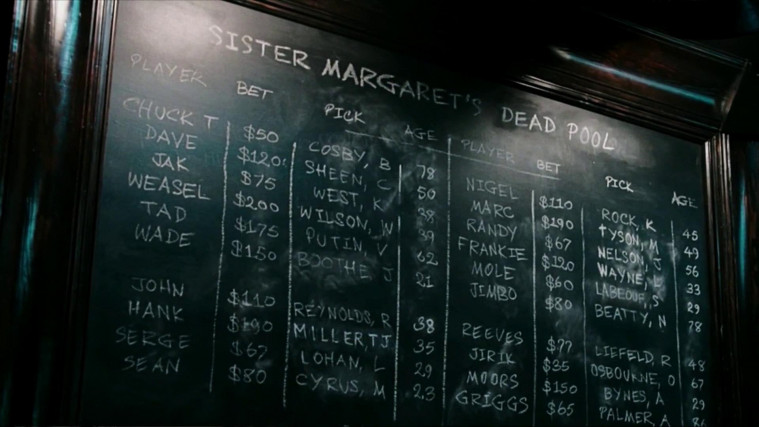 SISTER MARGARET'S DEAD POOL
PLAYER BET PICK AGE PLAYER BET PICK AGE
CHUCK T $50 COSBY, B 78 NIGEL $110 ROCK, K 45
DAVE $120 SHEEN, C 50 MARC $190 TYSON, M 49
JAK $75 WEST, K 38 RANDY $67 NELSON, J 56
WEASEL $200 WILSON, W 39 FRANKIE $120 WAYNE, L 33
TAD $175 PUTIN, V 62 MOLE $60 LABEOUF, S 29
WADE $150 BOOTHE, J 21 JIMBO $80 BEATTY, N 78
JOHN $110 REYNOLDS, R 38 REEVES $77 LIEFELD, R 48
HANK $190 MILLER, TJ 35 JIRIK $35 OSBOURNE, O 67
SERGE $67 LOHAN, L 29 MOORS $150 BYNES, A 29
SEAN $80 CYRUS, M 23 GRIGGS $65 PALMER, A